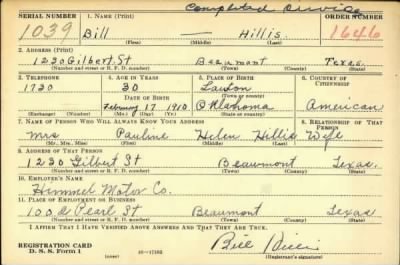 Completed Service
SERIAL NUMBER 1. NAME (Print) ORDER NUMBER
1039 Bill Hillis. 1646
(First) (Middle) (Last)
2. ADDRESS (Print)
1230 Gilbert St Beaumont Texas.
(Number and street or R. F. D. number) (Town) (County) (State)
3. TELEPHONE 4. AGE IN YEARS 5. PLACE OF BIRTH 6. COUNTRY OF CITIZENSHIP
1730 30 Lawton
DATE OF BIRTH (Town or county)
February 17 1910 Oklahoma American
(Exchange) (Number) (Mo.) (Day) (Yr.) (State or country)
7. NAME OF PERSON WHO WILL ALWAYS KNOW YOUR ADDRESS 8. RELATIONSHIP OF THAT PERSON
Mrs Pauline Helen Hillis Wife
(Mr., Mrs., Miss) (First) (Middle) (Last)
9. ADDRESS OF THAT PERSON
1230 Gilbert St Beaumont Texas.
(Number and street or R. F. D. number) (Town) (County) (State)
10. EMPLOYER'S NAME
Himmel Motor Co.
11. PLACE OF EMPLOYMENT OR BUSINESS
Pearl St Beaumont Texas
(Number and street or R. F. D. number) (Town) (County) (State)
I AFFIRM THAT I HAVE VERIFIED ABOVE ANSWERS AND THAT THEY ARE TRUE.
REGISTRATION CARD
D. S. S. Form 1 (over) Bill Hillis
(Registrant's signature)